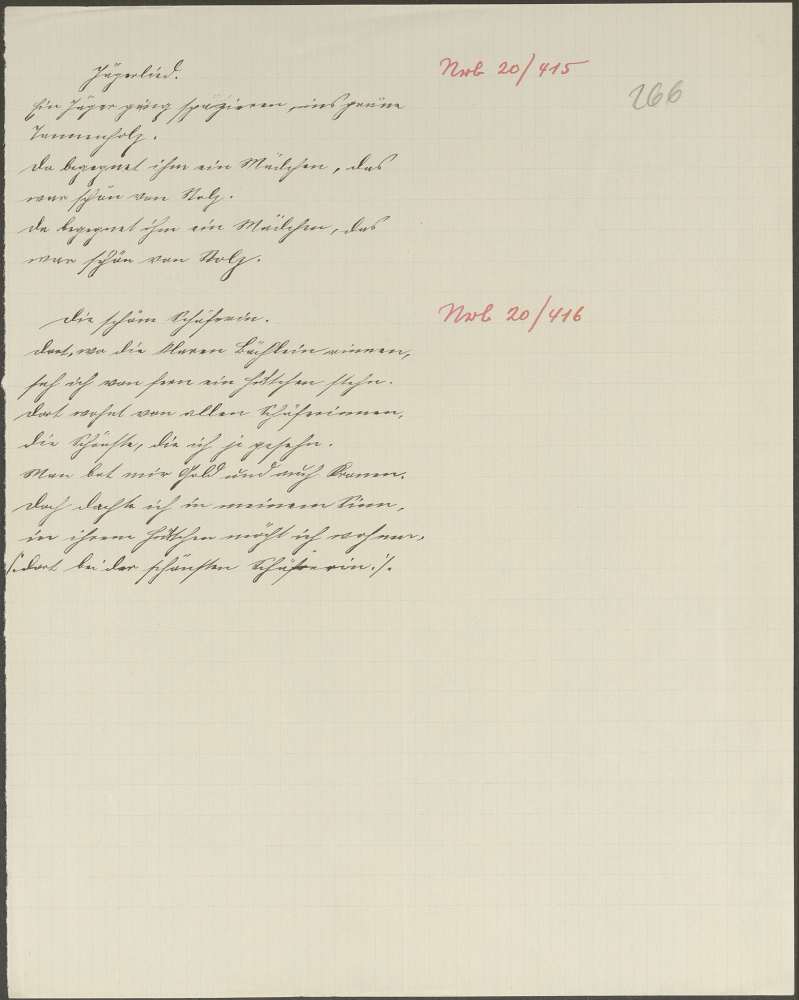 Jägerlied.
Nrb 20/415
266
Ein Jäger ging spazieren, ins grüne
Tannenholz.
Da begegnet ihm ein Mädchen, das
war schön von Stolz.
Da begegnet ihm ein Mädchen, das
war schön von Stolz.
Die schöne Schäferin.
Nrb 20/416
Dort, wo die klaren Bächlein rinnen,
sah ich von fern ein Hüttchen stehn.
Dort wohnt von allen Schäferinnen,
die Schönste, die ich je gesehn.
Man bot mir Gold und auch Kronen.
Doch dachte ich in meinem Sinn,
in ihrem Hüttchen möcht ich wohnen,
/:dort bei der schönsten Schäferin:/.